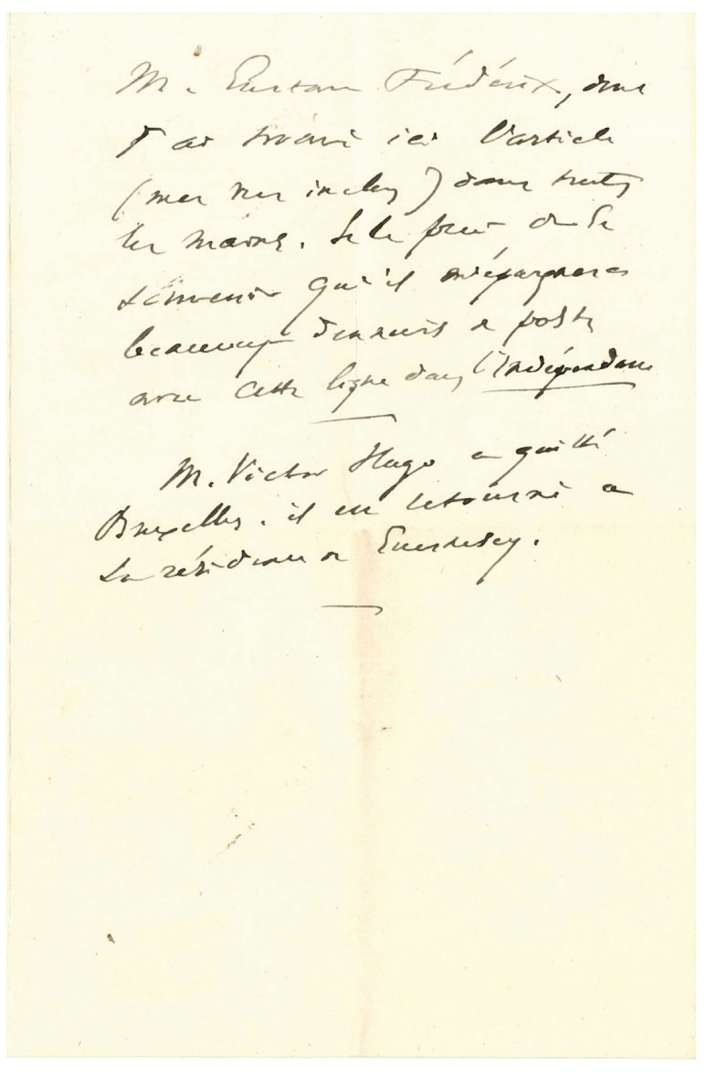 M. Gustave Frédérix, dont
j'ai trouvé ici l'article
(mes vers inclus) dans toutes
les mains. Je le prie de se
souvenir qu'il m'épargnera
beaucoup d'ennuis de poste
avec cette ligne dans l'Indépendance
M. Victor Hugo a quitté
Bruxelles. il est retourné à
sa résidence de Guernesey.